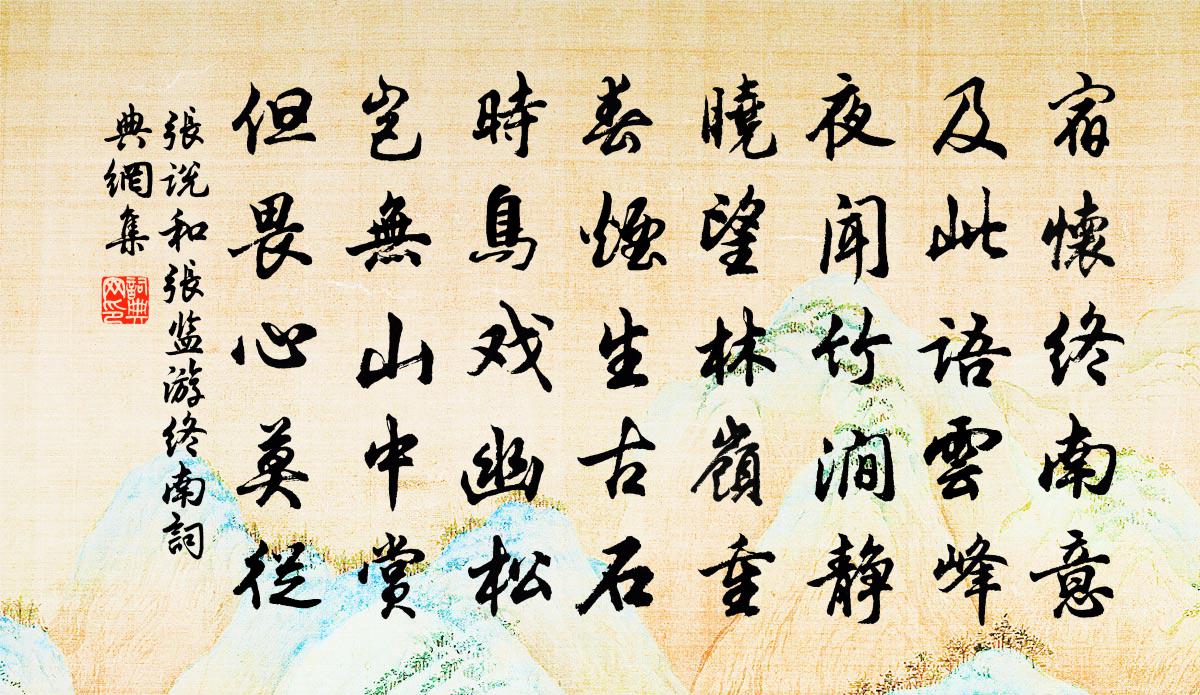 宿懷終南意
及此語雲峰
夜聞竹澗静
曉望林嶺重
春煙生古石
時鳥戏幽松
岂無山中赏
但畏心莫從
張说和張监游终南詞
典網集
詞典
网印